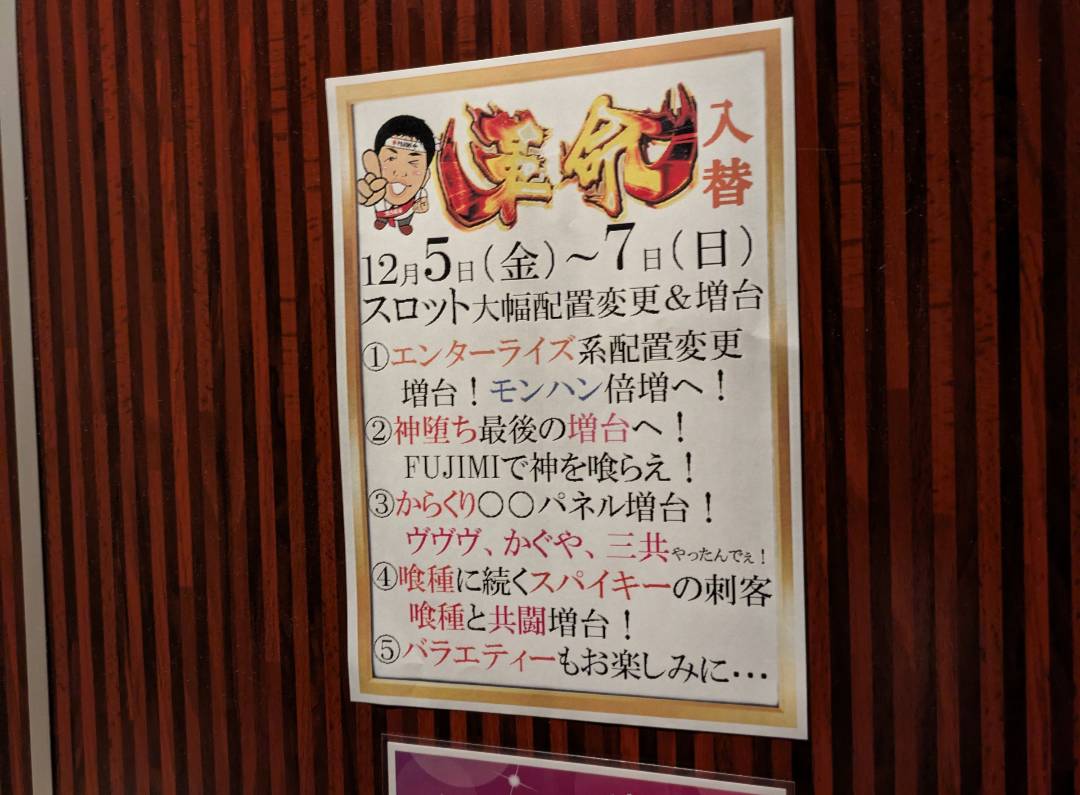 革命
入替
12月5日(金)～7日(日)
スロット大幅配置変更＆増台
①エンターライズ系配置変更
増台！モンハン倍増へ！
②神堕ち最後の増台へ！
FUJIMIで神を喰らえ！
③からくり〇〇パネル増台！
ヴヴヴ、かぐや、三共やったんでぇ！
④喰種に続くスパイキーの刺客
喰種と共闘増台！
⑤バラエティーもお楽しみに…